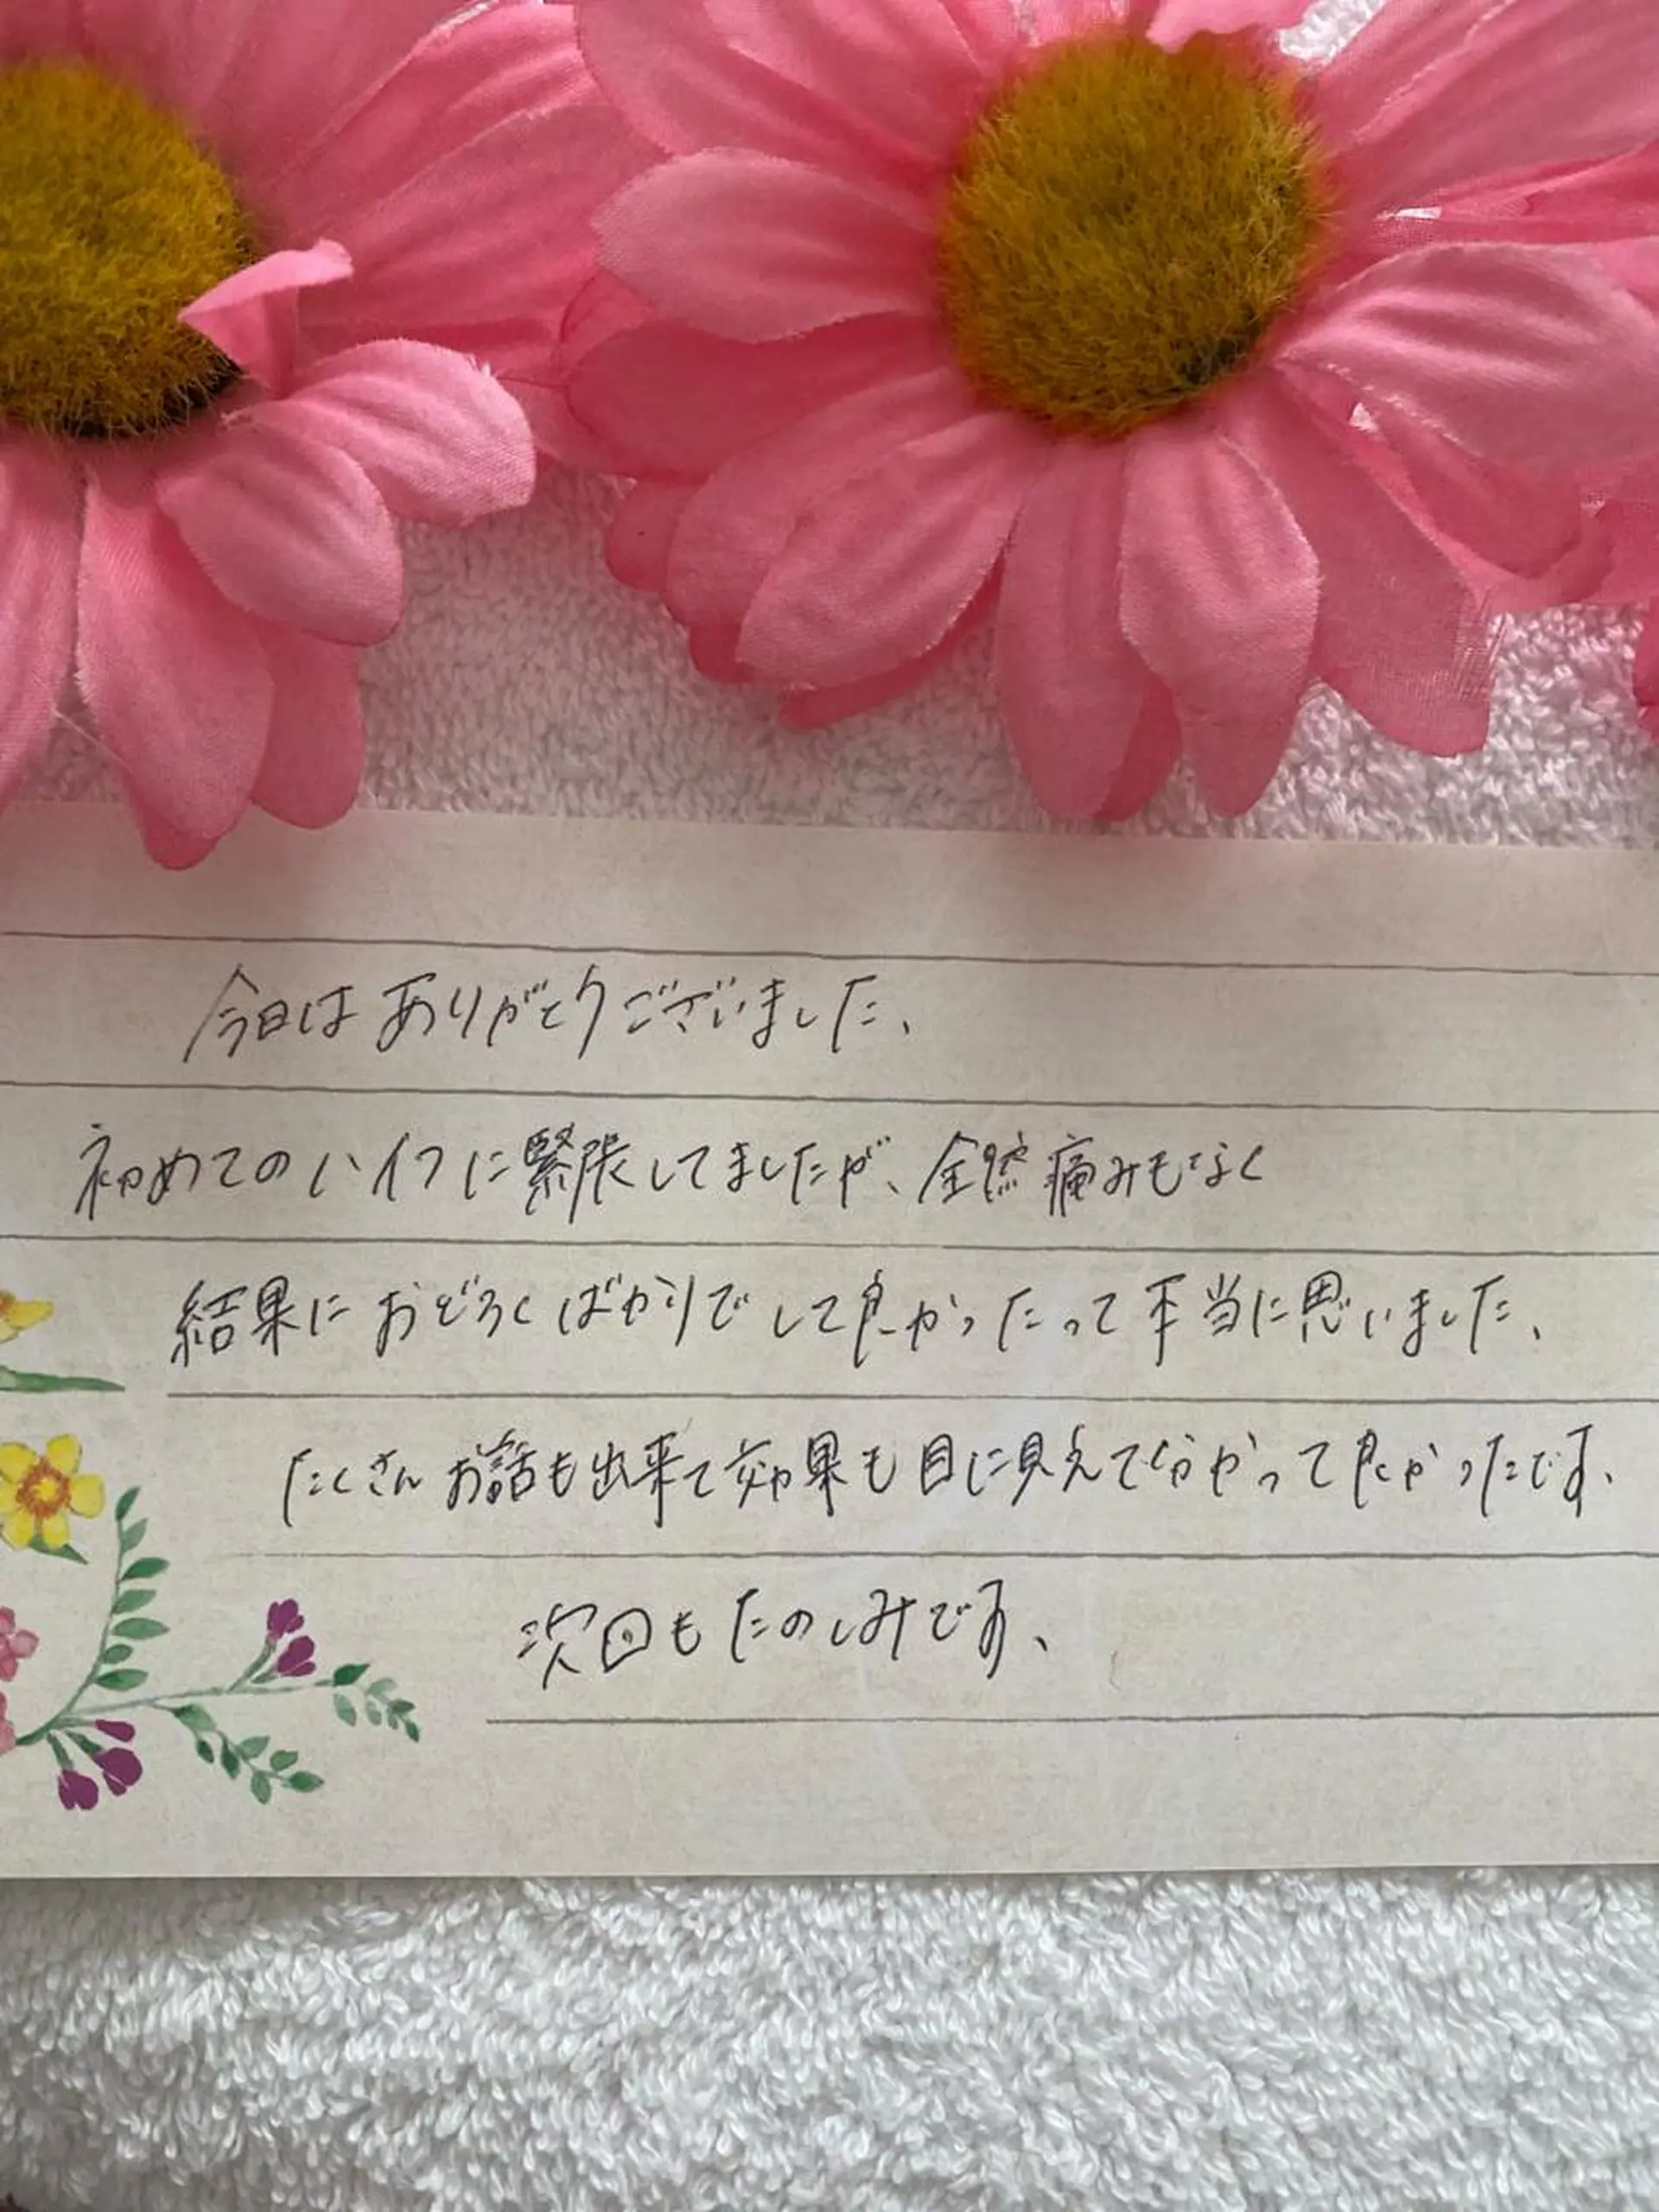 今日はありがとうございました、
初めてのハイフに緊張してましたが、全然痛みもなく
結果におどろくばかりでして良かったって本当に思いました、
たくさんお話も出来て効果も目に見えて分かって良かったです、
次回もたのしみです、